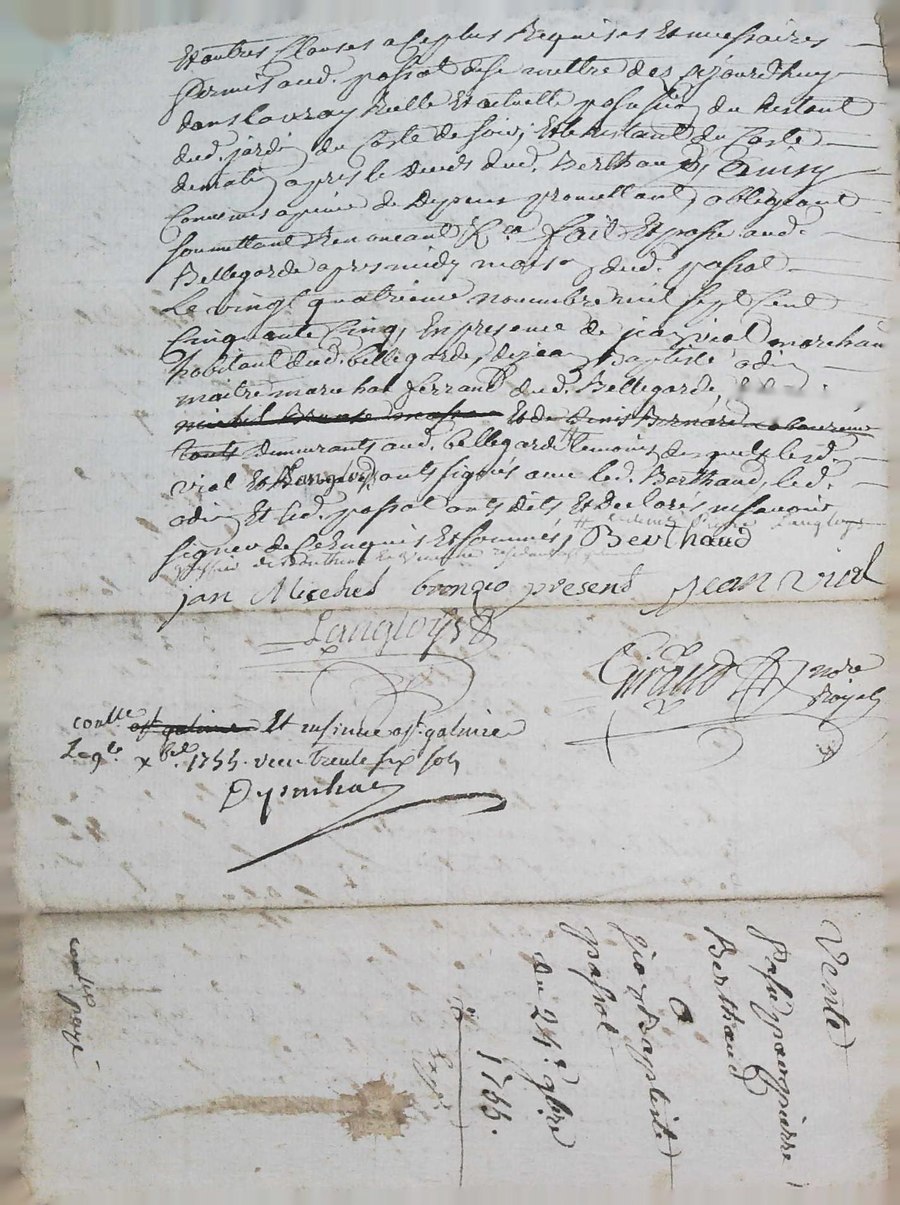 Et autres Clauses a ce plus Requises Et necessaires
permis aud. passal de se mettre des ajourdhuy
dans la vray Reelle Et actuelle possession du Restant
dud. jardin du Costé de soir, Et le Restant du Costé
de matin apres le deces dud. Berthaud, Ainsy
Convenus a peine de Depens promettant, obligeant
soumettant Renonceant &ca fait Et passé aud.
Bellegarde apres midy maison dud. passal
Le vingt quatrieme novembre mil sept Cent
Cinquante Cinq, En presence de jean vial marchand
habitant dud. bellegarde, de jean baptiste odin
maitre marechal ferrand dud. Bellegarde,
Et de Denis Bernard laboureur
touts demeurants aud. bellegarde temoins desquels led.
vial Et Langloys onts signés avec led. Berthaud, led.
odin Et led. passal onts dits Et declarés ne savoir
signer de ce Enquis Et sommés, Berthaud
jan Michel present Jean Vial
Langloys
Giraud nore
Royal
contlé Et insinué a st. galmier
Le 9e. xbre. 1755. reçu trente six sols
Vente
passé par pierre
Berthaud
A
jean Baptiste
passal
du 24e. 9bre
1755.
payé